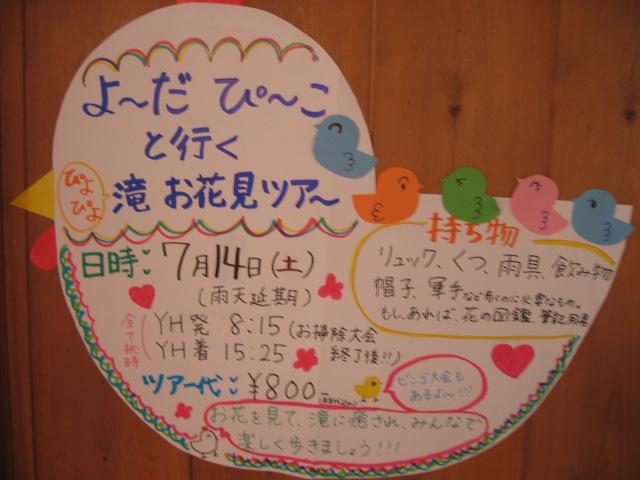 よ〜だ ぴ〜こ
と行く
ぴよ
ぴよ
滝 お花見ツアー
日時：7月14日(土)
(雨天延期)
YH発 8:15 (お掃除大会
YH着 15:25 終了後!!!)
ツアー代：¥800-
持ち物
リュック、くつ、雨具、飲み物
帽子、軍手など歩くのに必要なもの。
もし、あれば、花の図鑑、筆記用具
ビンゴ大会も
あるよ〜!!!
お花を見て、滝に癒され、みんなで
楽しく歩きましょう!!!